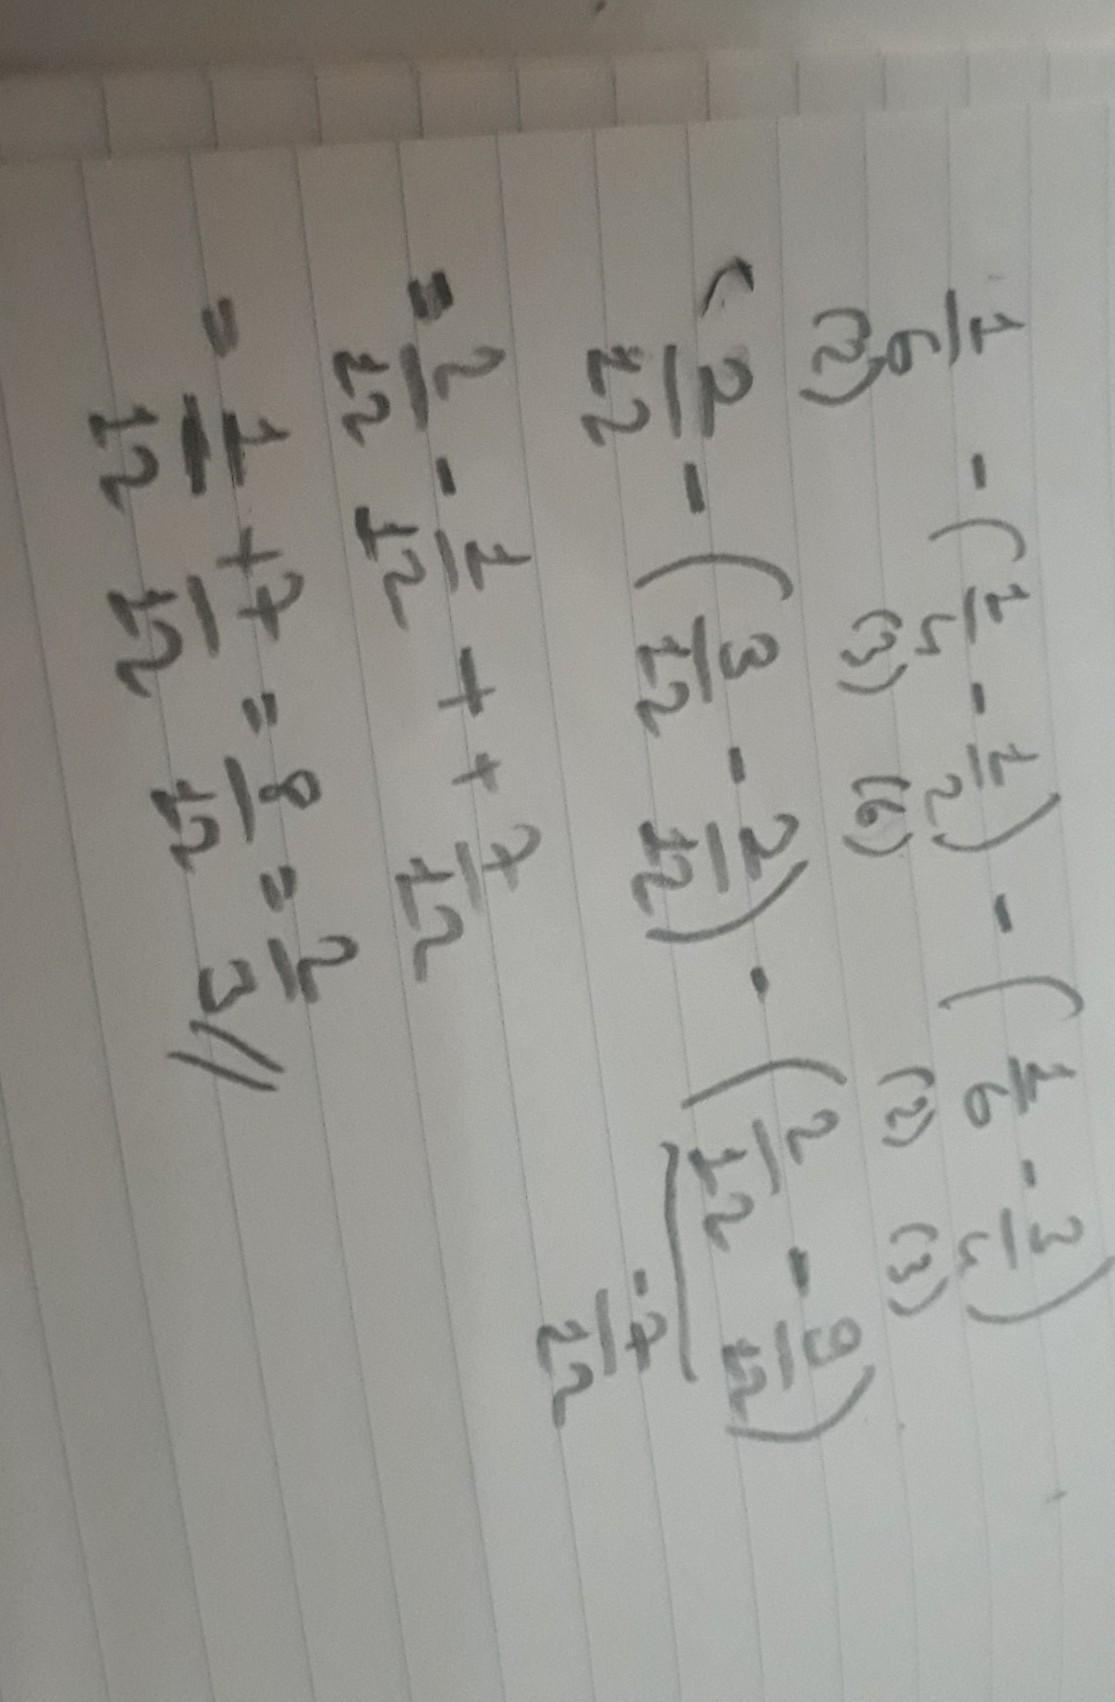 1/6 - (1/4 - 1/2) - (1/6 - 3/4)
(2) (3) (6) (2) (3)
( 2/12 - (3/12 - 2/12) - (2/12 - 9/12)
-7/12
= 2/12 - 1/12 + + 7/12
= 1/12 + 7/12 = 8/12 = 2/3 //